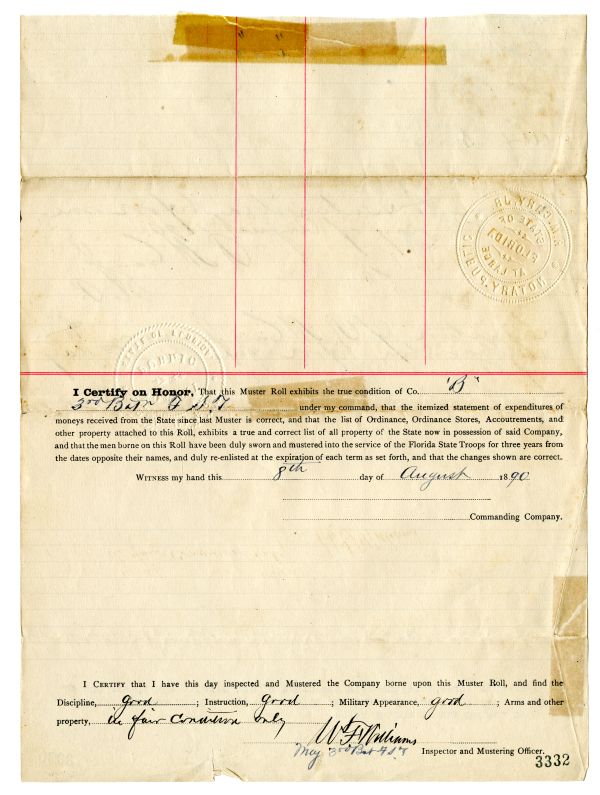 " "
I Certify on Honor, That this Muster Roll exhibits the true condition of Co. "B"
3rd Batn F S T under my command, that the itemized statement of expenditures of
moneys received from the State since last Muster is correct, and that the list of Ordinance, Ordinance Stores, Accoutrements, and
other property attached to this Roll, exhibits a true and correct list of all property of the State now in possession of said Company,
and that the men borne on this Roll have been duly sworn and mustered into the service of the Florida State Troops for three years from
the dates opposite their names, and duly re-enlisted at the expiration of each term as set forth, and that the changes shown are correct.
Witness my hand this 8th day of August 1890
Commanding Company.
I Certify that I have this day inspected and Mustered the Company borne upon this Muster Roll, and find the
Discipline, good; Instruction, good; Military Appearance, good; Arms and other
property, in fair condition only
W F Williams
Maj 3rd Bat F S T Inspector and Mustering Officer.
3332